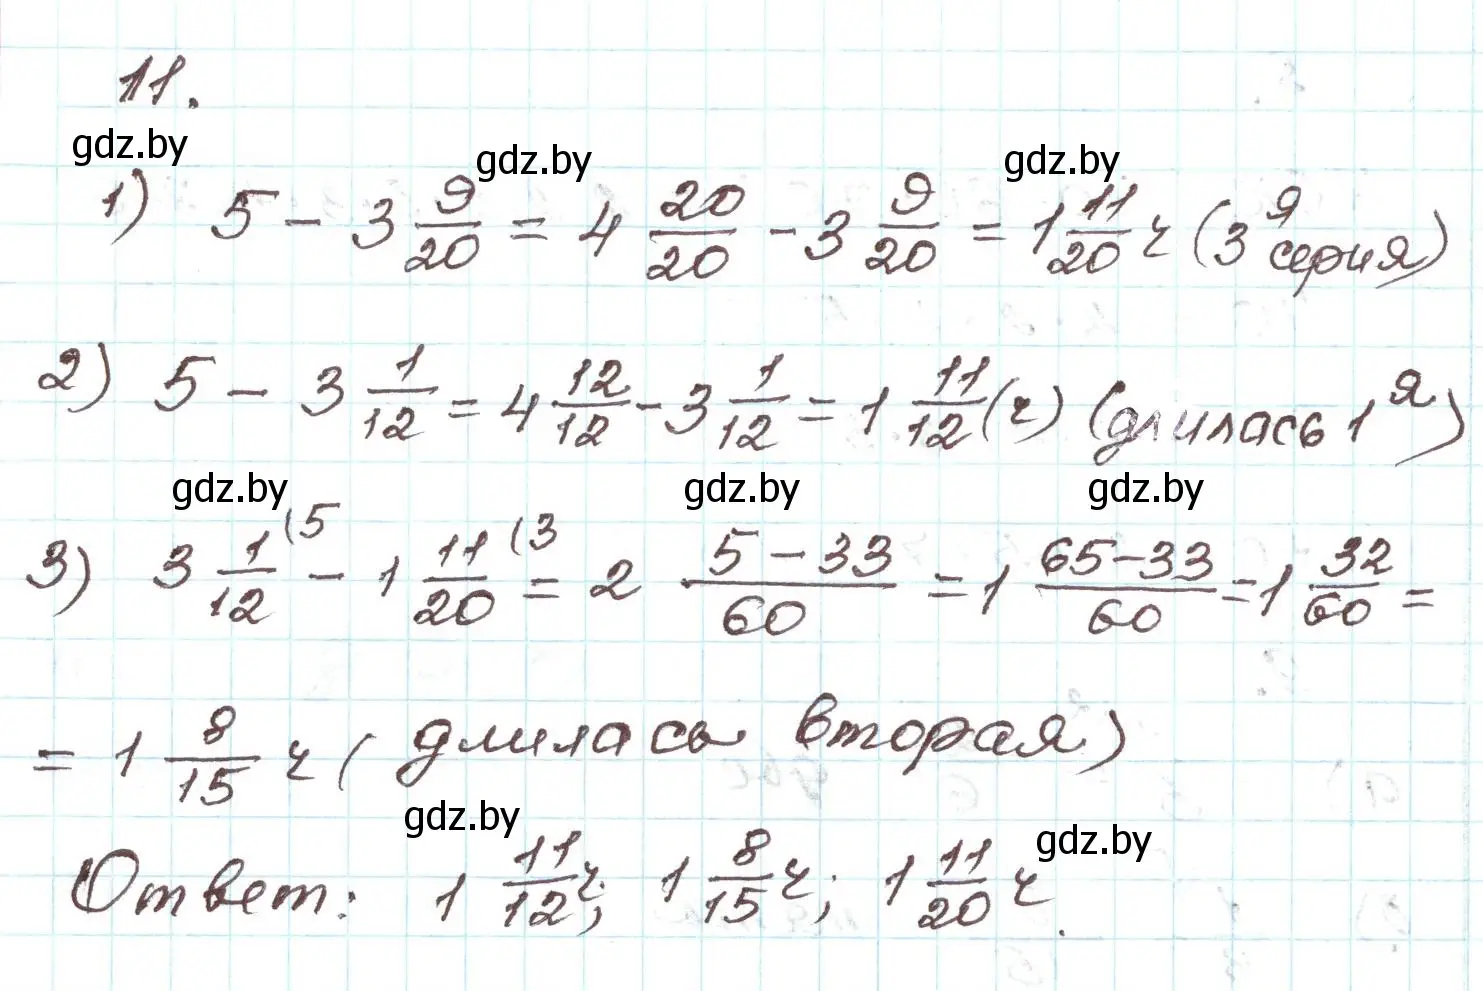 11.
gdz.by
gdz.by
gdz.by
1) 5 - 3 9/20 = 4 20/20 - 3 9/20 = 1 11/20 ч (3я серия)
2) 5 - 3 1/12 = 4 12/12 - 3 1/12 = 1 11/12 (ч) (длилась 1я)
gdz.by
gdz.by
gdz.by
3) 3 1/12 (5 - 1 11/20 (3 = 2 (5-33)/60 = 1 (65-33)/60 = 1 32/60 =
= 1 8/15 ч (длилась вторая)
gdz.by
gdz.by
Ответ: 1 11/12 ч; 1 8/15 ч; 1 11/20 ч.